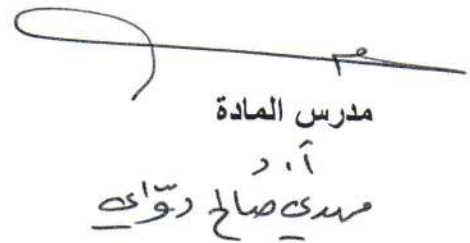 مدرس المادة
أ.د
مهدي صالح دوّاي